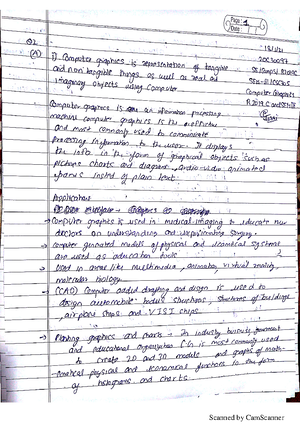 Page: 1
Date:
Q2.
(A)
1) Computer graphics is representation of tangible
and non tangible things as well as real or
imaginary objects using computer
Computer Graphics
Computer graphics is an information processing
machine computer graphics is the effective
and most commonly used to communicate
processing information to the user. It displays
the info in the form of graphical objects such as
picture charts and diagram,
instead of plain text.
Application
Computer graphics is used in medical imaging to educate new
doctors on understanding and surgery.
→ computer generated models of physical and system
are used as education tools
→ Used in areas like multimedia, animation, virtual reality,
molecular biology
→ (CAD) Computer aided drafting and design is used to
design automobile bodies structures, structures of buildings
airplane ships and VISI chips.
→ graphics and charts → In industry business government
and educational organization C.G is most commonly used
to create 2D and 3D models and graphs of math-
ematical physical and economical functions in the form
of histograms and charts.
Scanned by CamScanner